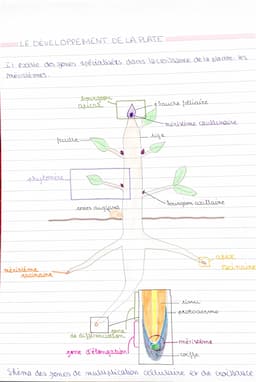 LE DEVELOPPEMENT DE LA PLATE
Il existe des zones spécialisées dans la croissance de la plante : les
méristèmes.
bourgeon
apical
ébauche foliaire
méristème caulinaire
feuille
tige
phytomère
bourgeon axillaire
zones
apex
racinaire
méristème
racinaire
zone
de différenciation
zone d'élongation
protoderme
méristème
coiffe
Shéma des zones de multiplication cellulaire et de croissance